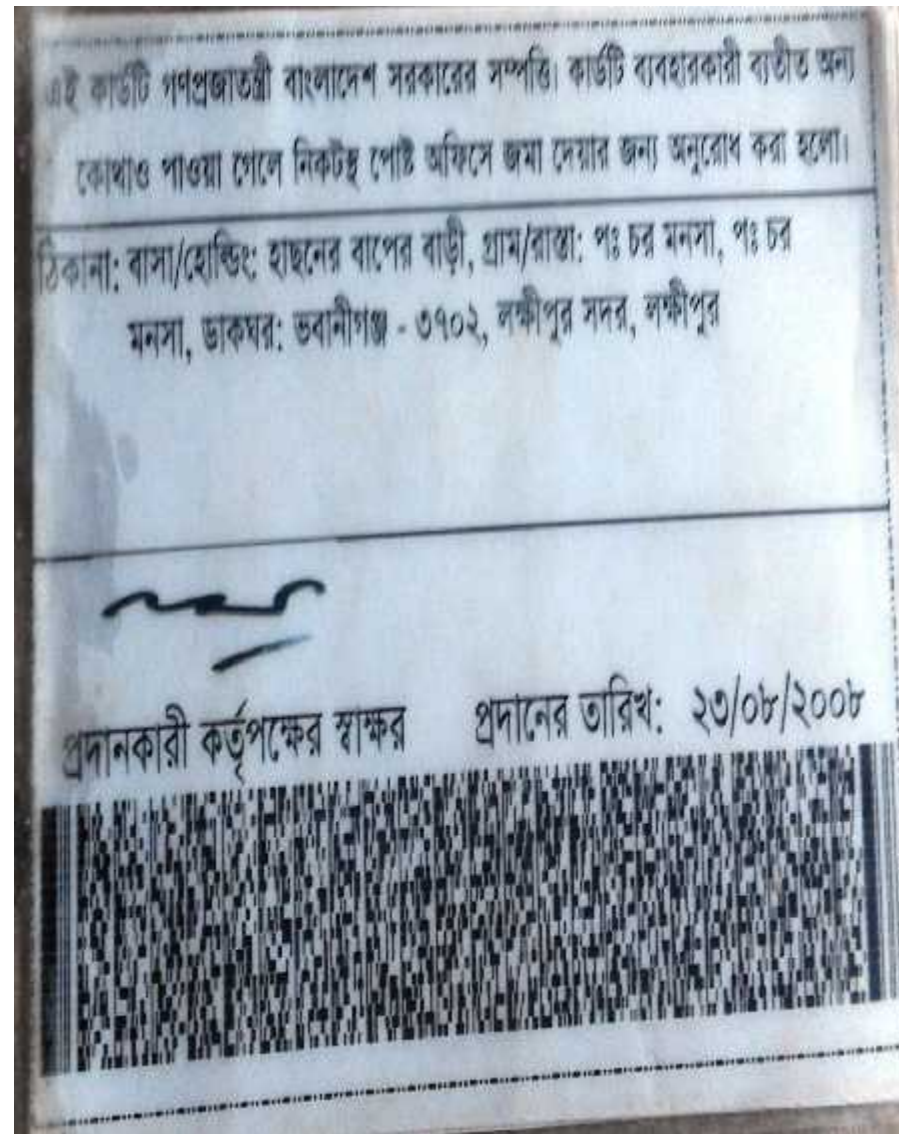 এই কার্ডটি গণপ্রজাতন্ত্রী বাংলাদেশ সরকারের সম্পত্তি। কার্ডটি ব্যবহারকারী ব্যতীত অন্য
কোথাও পাওয়া গেলে নিকটস্থ পোষ্ট অফিসে জমা দেয়ার জন্য অনুরোধ করা হলো।
ঠিকানা: বাসা/হোল্ডিং: হাছনের বাপের বাড়ী, গ্রাম/রাস্তা: পঃ চর মনসা, পঃ চর
মনসা, ডাকঘর: ভবানীগঞ্জ - ৩৭০২, লক্ষীপুর সদর, লক্ষীপুর
প্রদানকারী কর্তৃপক্ষের স্বাক্ষর প্রদানের তারিখ: ২৩/০৮/২০০৮